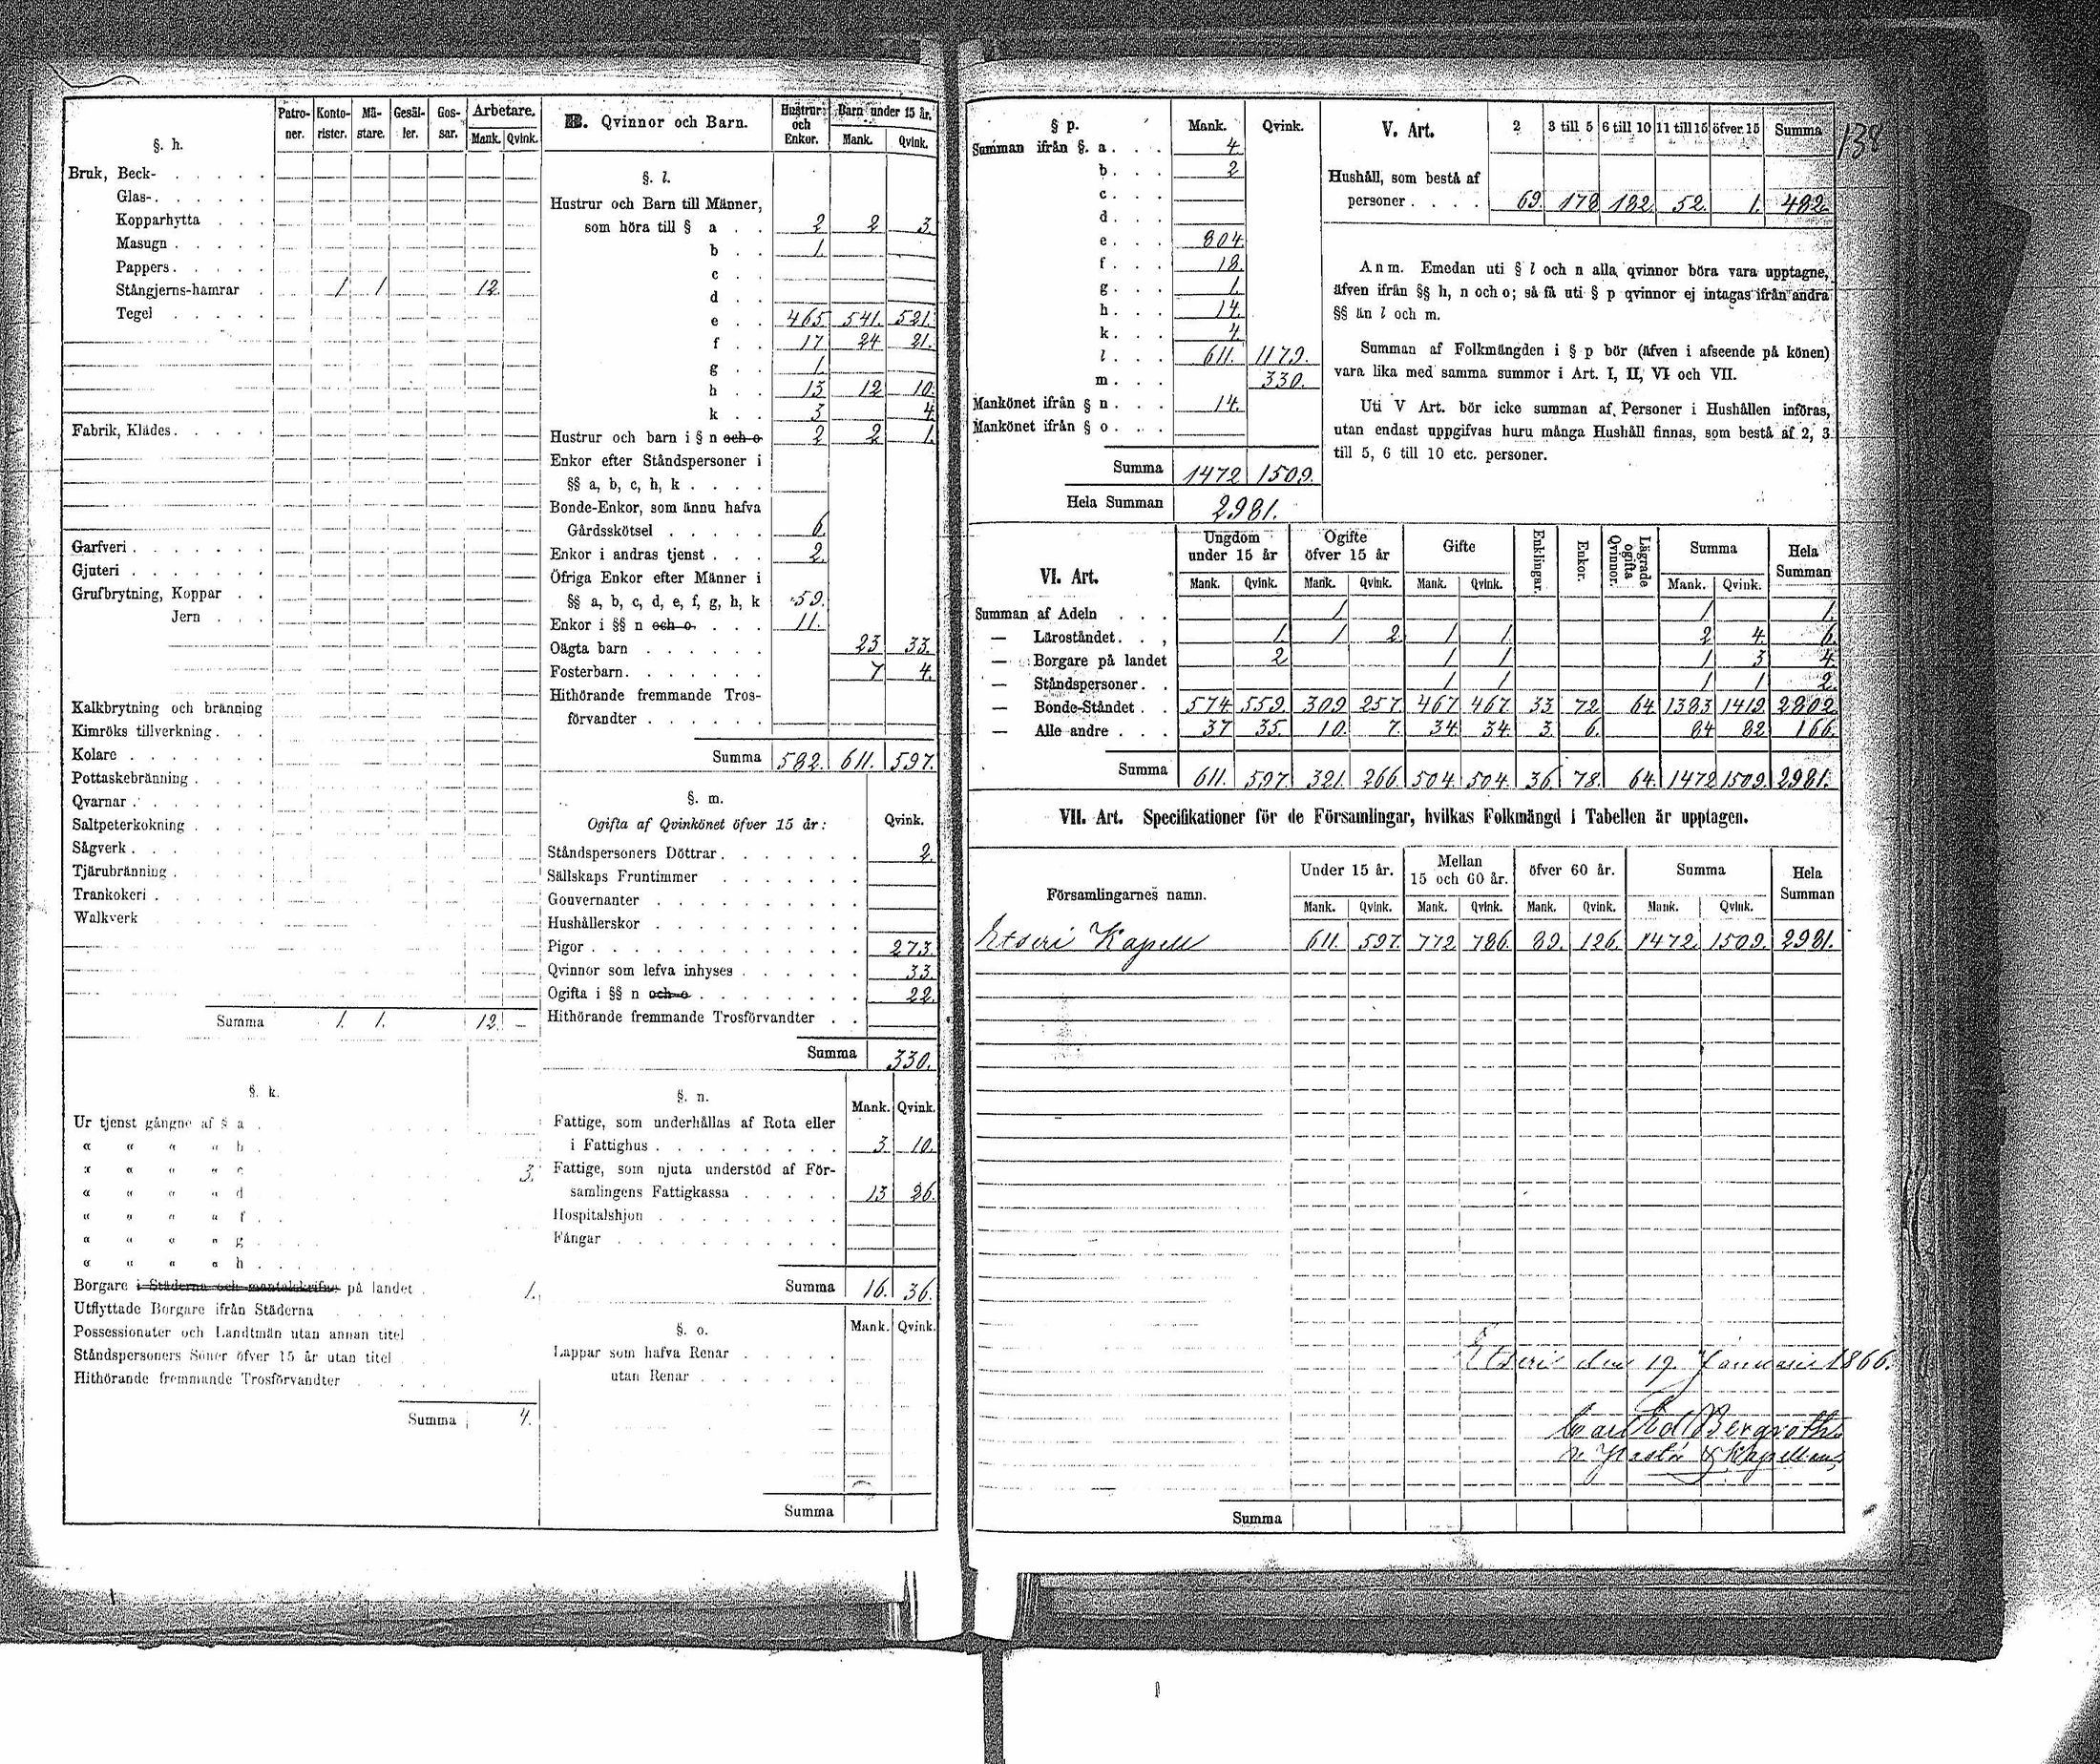 §. h.
Patroner. Kontorister. Mästare. Gesäller. Gossar. Arbetare.
Mank. Qvink.
Bruk, Beck-
Glas-
Kopparhytta
Masugn
Pappers
Stångjerns-hamrar 1 1 12.
Tegel
Fabrik, Klädes
Garfveri
Gjuteri
Grufbrytning, Koppar
Jern
Kalkbrytning och bränning
Kimröks tillverkning
Kolare
Pottaskebränning
Qvarnar
Saltpeterkokning
Sågverk
Tjärubränning
Trankokeri
Walkverk
Summa 1. 1. 12. –
§. k.
Ur tjenst gångne af § a
« « « « b
« « « « c 3.
« « « « d
« « « « f
« « « « g
« « « « h
Borgare i Städerna och mantalskrifne på landet 1.
Utflyttade Borgare ifrån Städerna
Possessionater och Landtmän utan annan titel
Ståndspersoners Söner öfver 15 år utan titel
Hithörande fremmande Trosförvandter
Summa 4.
B. Qvinnor och Barn.
Hustrur och Enkor. Barn under 15 år.
Mank. Qvink.
§. l.
Hustrur och Barn till Männer,
som höra till § a 2 2 3.
b 1.
c
d
e 465. 541. 521.
f 17 24 21.
g 1.
h 13 12 10.
k 3 4.
Hustrur och barn i § n och o 2 2 1.
Enkor efter Ståndspersoner i
§§ a, b, c, h, k
Bonde-Enkor, som ännu hafva
Gårdsskötsel 6.
Enkor i andras tjenst 2.
Öfriga Enkor efter Männer i
§§ a, b, c, d, e, f, g, h, k 59.
Enkor i §§ n och o 11.
Oägta barn 23 33.
Fosterbarn 7 4.
Hithörande fremmande Tros-
förvandter
Summa 582. 611. 597.
§. m.
Ogifta af Qvinkönet öfver 15 år: Qvink.
Ståndspersoners Döttrar 2.
Sällskaps Fruntimmer
Gouvernanter
Hushållerskor
Pigor 273.
Qvinnor som lefva inhyses 33.
Ogifta i §§ n och o 22.
Hithörande fremmande Trosförvandter
Summa 330.
§. n.
Mank. Qvink.
Fattige, som underhållas af Rota eller
i Fattighus 3. 10.
Fattige, som njuta understöd af För-
samlingens Fattigkassa 13 26.
Hospitalshjon
Fångar
Summa 16. 36.
§. o.
Mank. Qvink.
Lappar som hafva Renar
utan Renar
Summa
138
§ p. Mank. Qvink.
Summan ifrån §. a 4.
b 2
c
d
e 804.
f 18.
g 1.
h 14.
k 4.
l 611. 1179.
m 330.
Mankönet ifrån § n 14.
Mankönet ifrån § o
Summa 1472. 1509.
Hela Summan 2981.
V. Art. 2 3 till 5 6 till 10 11 till 15 öfver 15 Summa
Hushåll, som bestå af
personer 69. 178 182. 52. 1. 482.
Anm. Emedan uti § l och n alla qvinnor böra vara upptagne,
äfven ifrån §§ h, n och o; så få uti § p qvinnor ej intagas ifrån andra
§§ än l och m.
Summan af Folkmängden i § p bör (äfven i afseende på könen)
vara lika med samma summor i Art. I, II, VI och VII.
Uti V Art. bör icke summan af Personer i Hushållen införas,
utan endast uppgifvas huru många Hushåll finnas, som bestå af 2, 3
till 5, 6 till 10 etc. personer.
VI. Art.
Ungdom under 15 år Ogifte öfver 15 år Gifte Enklingar. Enkor. Lägrade ogifta Qvinnor. Summa Hela Summan
Mank. Qvink. Mank. Qvink. Mank. Qvink. Mank. Qvink.
Summan af Adeln 1. 1 1.
— Läroståndet 1. 1 2 1 1. 2 4. 6.
— Borgare på landet 2 1 1 1 3 4.
— Ståndspersoner 1 1 1 1 2.
— Bonde-Ståndet 574 559. 309 257 467 467 33 72 64 1383 1419 2802.
— Alle andre 37 35. 10. 7. 34. 34. 3. 6. 84 82 166.
Summa 611. 597. 321. 266. 504. 504. 36. 78. 64. 1472 1509. 2981.
VII. Art. Specifikationer för de Församlingar, hvilkas Folkmängd i Tabellen är upptagen.
Församlingarnes namn. Under 15 år. Mellan 15 och 60 år. öfver 60 år. Summa Hela Summan
Mank. Qvink. Mank. Qvink. Mank. Qvink. Mank. Qvink.
Etseri Kapell 611. 597. 772 786. 89. 126. 1472. 1509. 2981.
Etseri den 19 Januarii 1866.
Carl Bergroth
v. Pastor & Kapellan
Summa